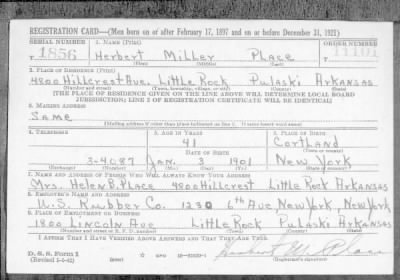 REGISTRATION CARD—(Men born on or after February 17, 1897 and on or before December 31, 1921)
SERIAL NUMBER 1. NAME (Print) ORDER NUMBER
1856 Herbert Miller Place
(First) (Middle) (Last)
2. PLACE OF RESIDENCE (Print)
4800 Hillcrest Ave, Little Rock Pulaski Arkansas
(Number and street) (Town, township, village, or city) (County) (State)
[THE PLACE OF RESIDENCE GIVEN ON THE LINE ABOVE WILL DETERMINE LOCAL BOARD
JURISDICTION; LINE 2 OF REGISTRATION CERTIFICATE WILL BE IDENTICAL]
3. MAILING ADDRESS
Same
[Mailing address if other than place indicated on line 2. If same insert word same]
4. TELEPHONE 5. AGE IN YEARS 6. PLACE OF BIRTH
41 Cortland
DATE OF BIRTH (Town or county)
3-4087 Jan. 3 1901 New York
(Exchange) (Number) (Mo.) (Day) (Yr.) (State or country)
7. NAME AND ADDRESS OF PERSON WHO WILL ALWAYS KNOW YOUR ADDRESS
Mrs. Helen B. Place 4800 Hillcrest Little Rock Arkansas
8. EMPLOYER'S NAME AND ADDRESS
U.S. Rubber Co. 1230 6th Ave, New York, New York
9. PLACE OF EMPLOYMENT OR BUSINESS
1800 Lincoln Ave Little Rock Pulaski Arkansas
(Number and street or R. F. D. number) (Town) (County) (State)
I AFFIRM THAT I HAVE VERIFIED ABOVE ANSWERS AND THAT THEY ARE TRUE.
D. S. S. Form 1
(Revised 1-5-42) (over) Herbert M. Place